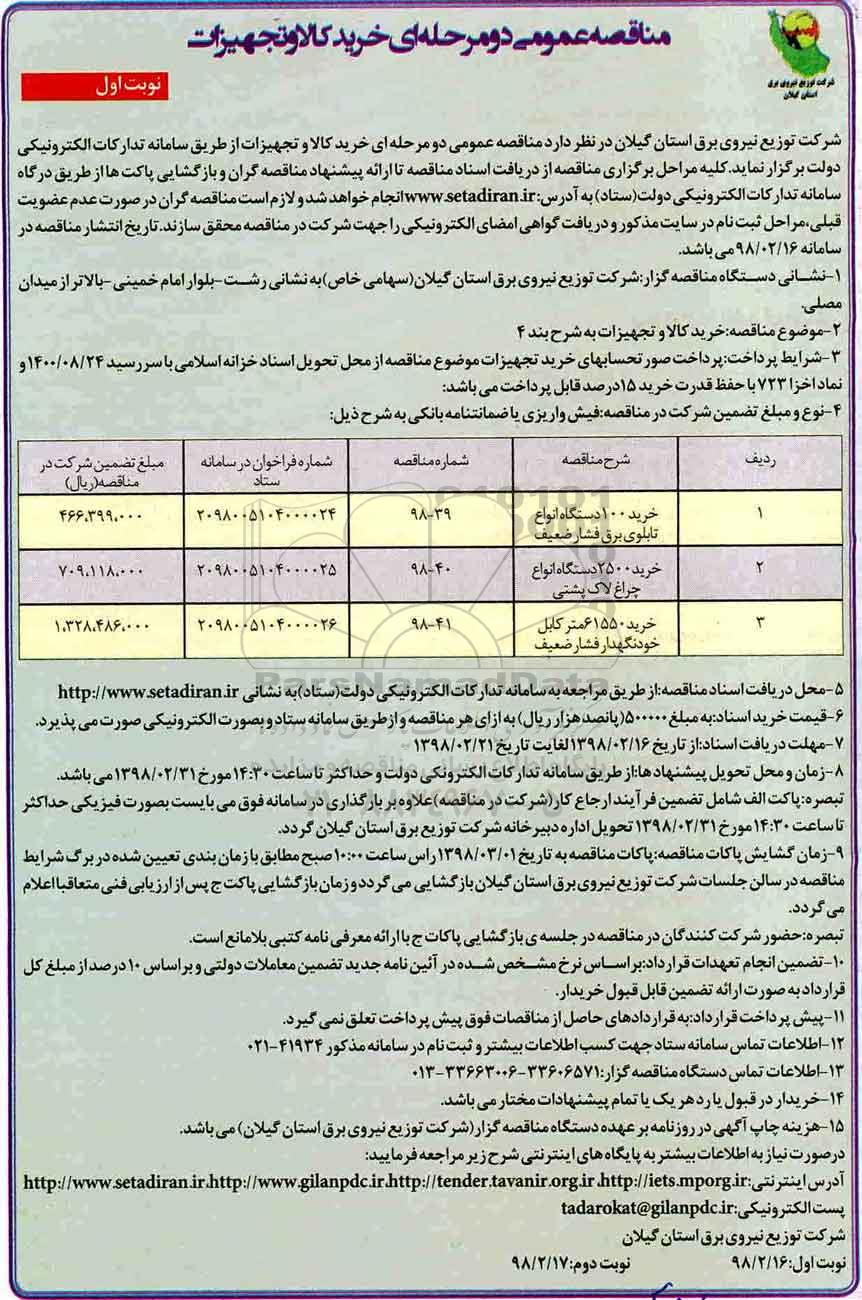 مناقصه عمومی دو مرحله‌ای خرید کالا و تجهیزات
شرکت توزیع نیروی برق
استان گیلان
نوبت اول
شرکت توزیع نیروی برق استان گیلان در نظر دارد مناقصه عمومی دو مرحله ای خرید کالا و تجهیزات از طریق سامانه تدارکات الکترونیکی
دولت برگزار نماید.کلیه مراحل برگزاری مناقصه از دریافت اسناد مناقصه تا ارائه پیشنهاد مناقصه گران و بازگشایی پاکت ها از طریق درگاه
سامانه تدارکات الکترونیکی دولت(ستاد) به آدرس:www.setadiran.ir انجام خواهد شد و لازم است مناقصه گران در صورت عدم عضویت
قبلی،مراحل ثبت نام در سایت مذکور و دریافت گواهی امضای الکترونیکی را جهت شرکت در مناقصه محقق سازند.تاریخ انتشار مناقصه در
سامانه ۹۸/۰۲/۱۶ می باشد.
۱-نشانی دستگاه مناقصه گزار:شرکت توزیع نیروی برق استان گیلان(سهامی خاص) به نشانی رشت-بلوار امام خمینی-بالاتر از میدان
مصلی.
۲-موضوع مناقصه:خرید کالا و تجهیزات به شرح بند ۴
۳-شرایط پرداخت:پرداخت صورتحسابهای خرید تجهیزات موضوع مناقصه از محل تحویل اسناد خزانه اسلامی با سررسید ۱۴۰۰/۰۸/۲۴ و
نماد اخزا ۷۲۳ با حفظ قدرت خرید ۱۵درصد قابل پرداخت می باشد:
۴-نوع و مبلغ تضمین شرکت در مناقصه:فیش واریزی یا ضمانتنامه بانکی به شرح ذیل:
ردیف | شرح مناقصه | شماره مناقصه | شماره فراخوان در سامانه ستاد | مبلغ تضمین شرکت در مناقصه(ریال)
۱ | خرید ۱۰۰دستگاه انواع تابلوی برق فشار ضعیف | ۹۸-۳۹ | ۲۰۹۸۰۰۵۱۰۴۰۰۰۰۲۴ | ۴۶۶،۳۹۹،۰۰۰
۲ | خرید ۲۵۰۰دستگاه انواع چراغ لاک پشتی | ۹۸-۴۰ | ۲۰۹۸۰۰۵۱۰۴۰۰۰۰۲۵ | ۷۰۹،۱۱۸،۰۰۰
۳ | خرید ۶۱۵۵۰متر کابل خودنگهدار فشار ضعیف | ۹۸-۴۱ | ۲۰۹۸۰۰۵۱۰۴۰۰۰۰۲۶ | ۱،۳۲۸،۴۸۶،۰۰۰
ParsNamadData
۵-محل دریافت اسناد مناقصه:از طریق مراجعه به سامانه تدارکات الکترونیکی دولت(ستاد) به نشانی http://www.setadiran.ir
۶-قیمت خرید اسناد:به مبلغ ۵۰۰۰۰۰(پانصد هزار ریال) به ازای هر مناقصه و از طریق سامانه ستاد و بصورت الکترونیکی صورت می پذیرد.
۷-مهلت دریافت اسناد:از تاریخ ۱۳۹۸/۰۲/۱۶ لغایت تاریخ ۱۳۹۸/۰۲/۲۱
۸-زمان و محل تحویل پیشنهادها:از طریق سامانه تدارکات الکترونکی دولت و حداکثر تا ساعت ۱۴:۳۰ مورخ ۱۳۹۸/۰۲/۳۱ می باشد.
تبصره:پاکت الف شامل تضمین فرآیند ارجاع کار(شرکت در مناقصه)علاوه بر بارگذاری در سامانه فوق می بایست بصورت فیزیکی حداکثر
تا ساعت ۱۴:۳۰ مورخ ۱۳۹۸/۰۲/۳۱ تحویل اداره دبیرخانه شرکت توزیع برق استان گیلان گردد.
۹-زمان گشایش پاکات مناقصه:پاکات مناقصه به تاریخ ۱۳۹۸/۰۳/۰۱ راس ساعت ۱۰:۰۰ صبح مطابق با زمان بندی تعیین شده در برگ شرایط
مناقصه در سالن جلسات شرکت توزیع نیروی برق استان گیلان بازگشایی می گردد و زمان بازگشایی پاکت ج پس از ارزیابی فنی متعاقبا اعلام
می گردد.
تبصره:حضور شرکت کنندگان در مناقصه در جلسه ی بازگشایی پاکات ج با ارائه معرفی نامه کتبی بلامانع است.
۱۰-تضمین انجام تعهدات قرارداد:براساس نرخ مشخص شده در آئین نامه جدید تضمین معاملات دولتی و براساس ۱۰درصد از مبلغ کل
قرارداد به صورت ارائه تضمین قابل قبول خریدار.
۱۱-پیش پرداخت قرارداد:به قراردادهای حاصل از مناقصات فوق پیش پرداخت تعلق نمی گیرد.
۱۲-اطلاعات تماس سامانه ستاد جهت کسب اطلاعات بیشتر و ثبت نام در سامانه مذکور ۴۱۹۳۴-۰۲۱
۱۳-اطلاعات تماس دستگاه مناقصه گزار:۳۳۶۰۶۵۷۱-۳۳۶۶۳۰۰۶-۰۱۳
۱۴-خریدار در قبول یا رد هر یک یا تمام پیشنهادات مختار می باشد.
۱۵-هزینه چاپ آگهی در روزنامه بر عهده دستگاه مناقصه گزار(شرکت توزیع نیروی برق استان گیلان) می باشد.
درصورت نیاز به اطلاعات بیشتر به پایگاه های اینترنتی شرح زیر مراجعه فرمایید:
آدرس اینترنتی:http://www.setadiran.ir،http://www.gilanpdc.ir،http://tender.tavanir.org.ir،http://iets.mporg.ir
پست الکترونیکی:tadarokat@gilanpdc.ir
شرکت توزیع نیروی برق استان گیلان
نوبت اول:۹۸/۲/۱۶ نوبت دوم:۹۸/۲/۱۷